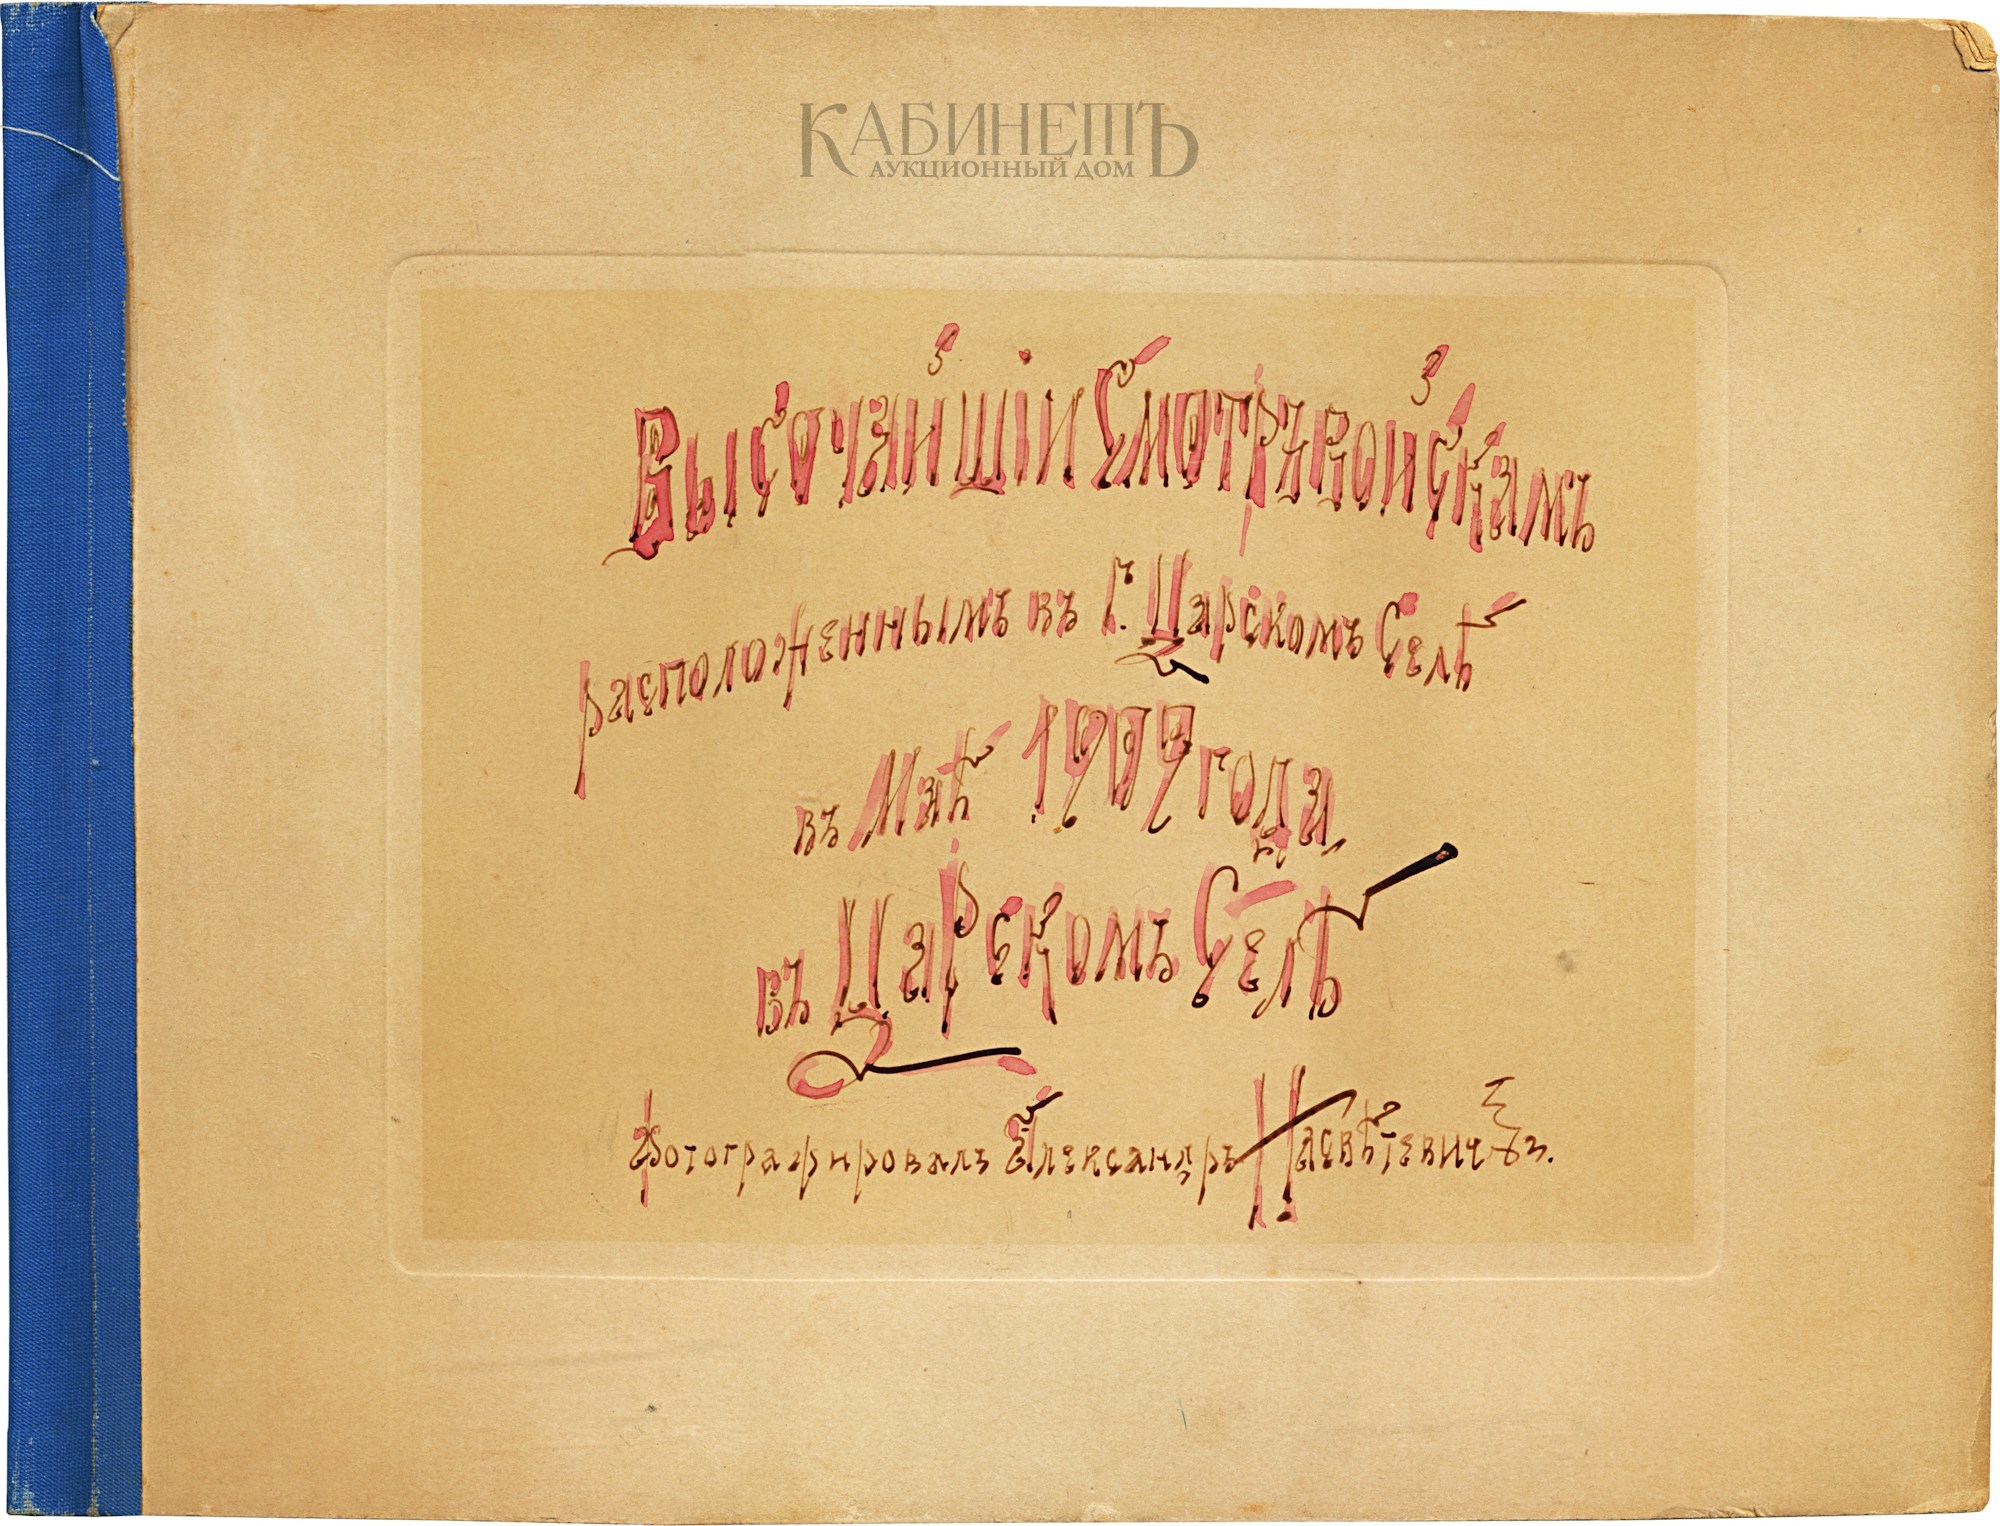 КАБИНЕТЪ
АУКЦИОННЫЙ ДОМ
Высочайшій Смотръ войскамъ
расположеннымъ въ г. Царскомъ Селѣ
въ Маѣ 1909 года
въ Царскомъ Селѣ
фотографировалъ Александръ Насвѣтевичъ.